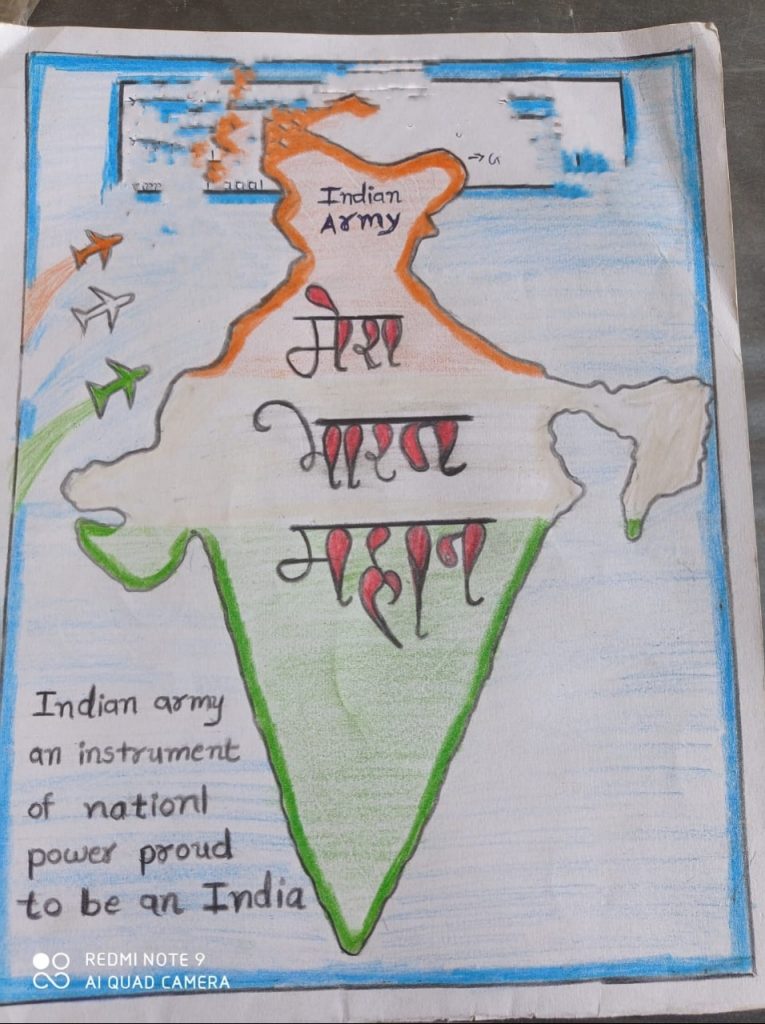 Indian
Army
मेरा
भारत
महान
Indian army
an instrument
of nationl
power proud
to be an India
REDMI NOTE 9
AI QUAD CAMERA